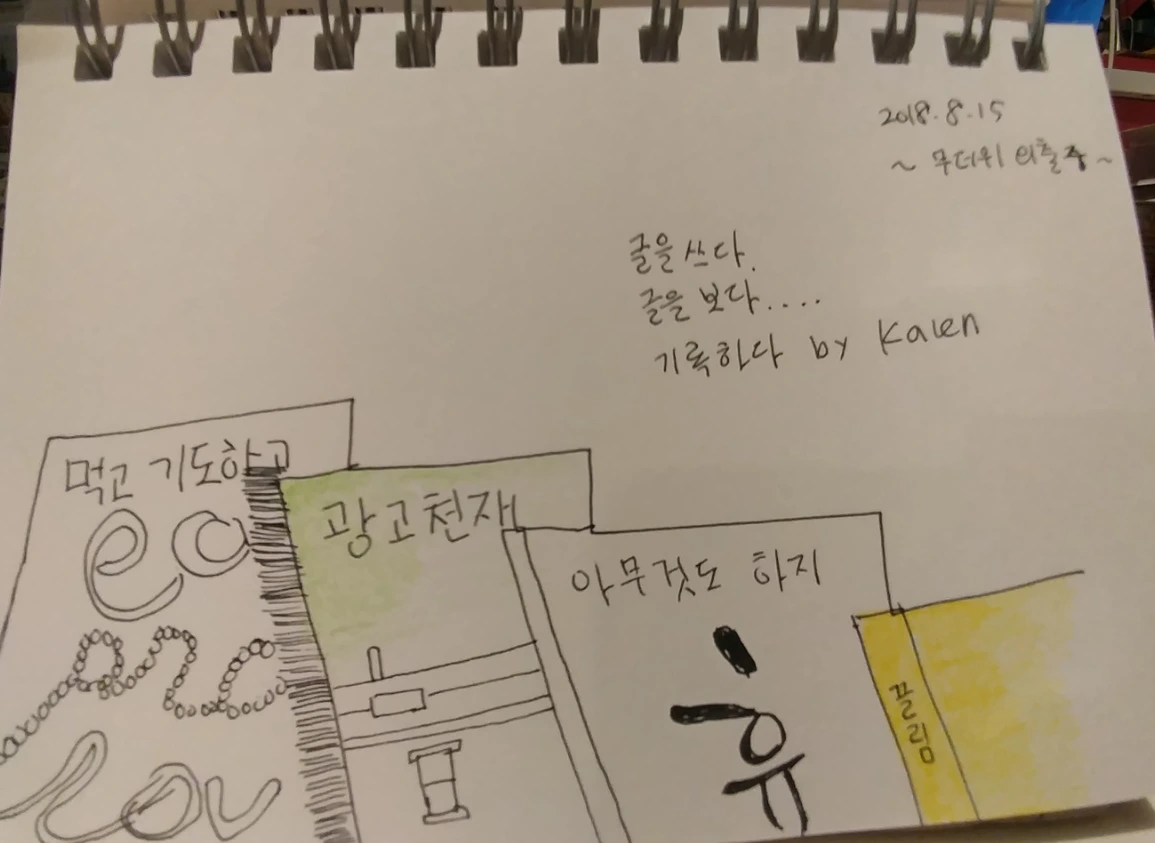 2018.8.15
~ 무더위 탈출 ~
글을 쓰다.
글을 보다....
기록하다 by Kalen
먹고 기도하고
ea
and
lov
광고천재
I
아무것도 하지
유
끌림